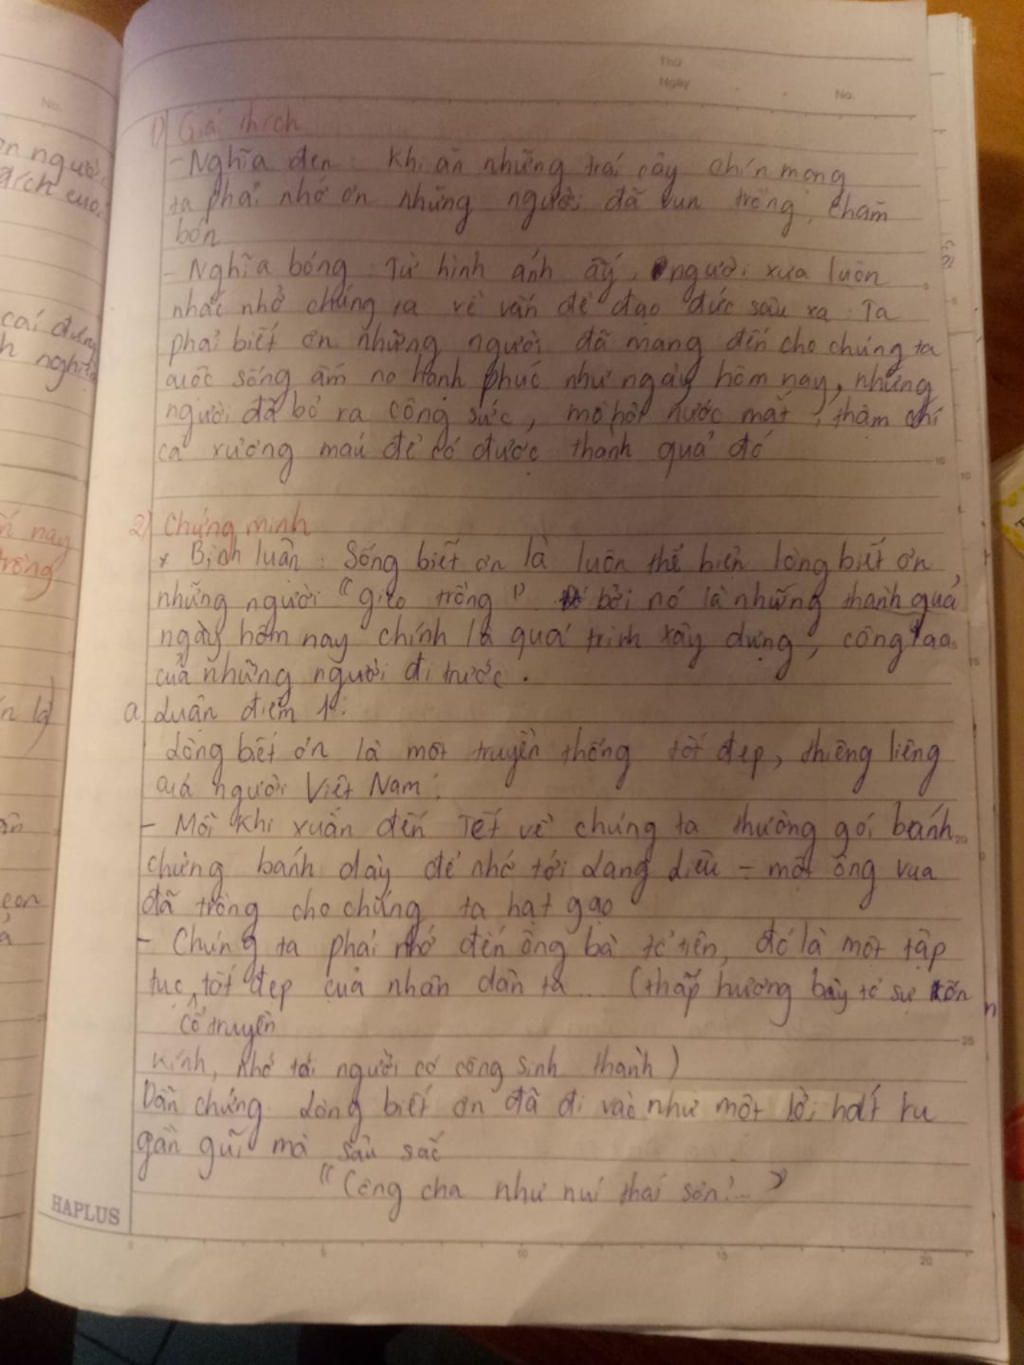 Thứ
Ngày
No.
No.
1) Giải thích
- Nghĩa đen: Khi ăn những trái cây chín mọng
ta phải nhớ ơn những người đã vun trồng, chăm
bón
- Nghĩa bóng: Từ hình ảnh ấy, người xưa luôn
nhắc nhở chúng ta về vấn đề đạo đức sâu xa. Ta
phải biết ơn những người đã mang đến cho chúng ta
cuộc sống ấm no hạnh phúc như ngày hôm nay, những
người đã bỏ ra công sức, mồ hôi nước mắt, thậm chí
cả xương máu để có được thành quả đó
2) Chứng minh
* Bình luận: Sống biết ơn là luôn thể hiện lòng biết ơn,
những người "gieo trồng" bởi nó là những thành quả
ngày hôm nay chính là quá trình xây dựng, công lao
của những người đi trước.
a) Luận điểm 1:
Lòng biết ơn là một truyền thống tốt đẹp, thiêng liêng
quá người Việt Nam:
- Mỗi khi xuân đến Tết về chúng ta thường gói bánh
chưng bánh dày để nhớ tới Lang Liêu - một ông vua
đã trồng cho chúng ta hạt gạo
- Chúng ta phải nhớ đến ông bà tổ tiên, đó là một tập
tục, tốt đẹp của nhân dân ta... (thắp hương bày tỏ sự tôn
cổ truyền
kính, nhớ tới người có công sinh thành)
Dẫn chứng: Lòng biết ơn đã đi vào như một lời hát ru
gần gũi mà sâu sắc
"Công cha như núi thái sơn!..."
HAPLUS
0 5 10 15 20